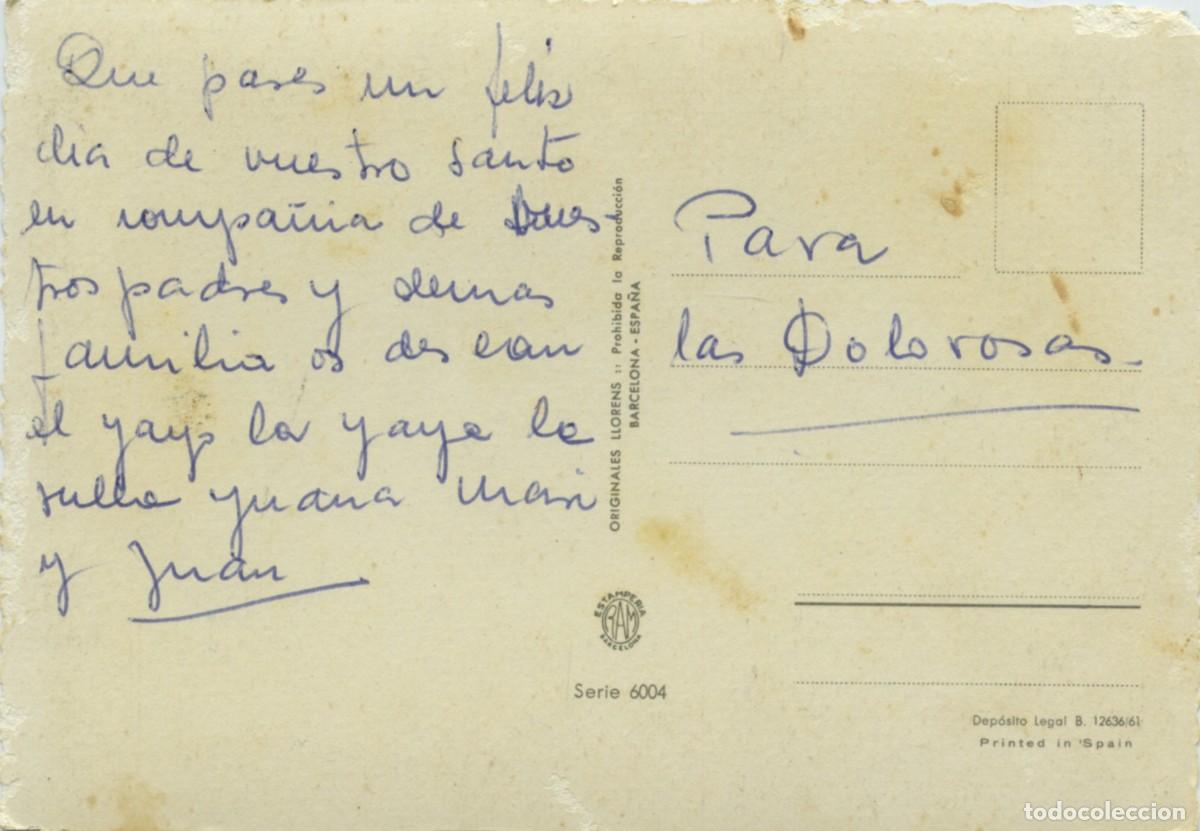 Que pases un felix
dia de vuestro santo
en compañia de vues-
tros padres y demas
familia os desean
el yayo la yaya la
Juana Mari
y Juan
Para
las Dolorosas
ORIGINALES LLORENS :: Prohibida la Reproducción
BARCELONA - ESPAÑA
ESTAMPERIA
RAM
BARCELONA
Serie 6004
Depósito Legal B. 12636/61
Printed in Spain
todocoleccion